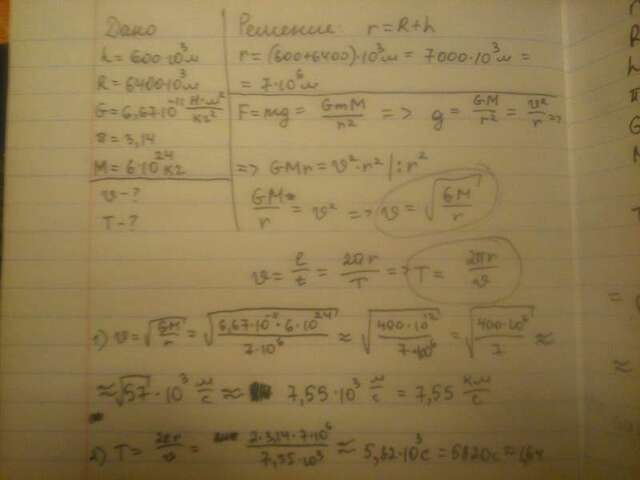 Дано
h = 600·10³м
R = 6400·10³м
G = 6,67·10⁻¹¹ Н·м²/кг²
π = 3,14
M = 6·10²⁴ кг
v - ?
T - ?
Решение: r = R + h
r = (600+6400)·10³м = 7000·10³м =
= 7·10⁶м
F = mg = GmM/r² => g = GM/r² = v²/r =>
=> GMr = v²·r² /: r²
GM/r = v² => v = √(GM/r)
v = l/t = 2πr/T => T = 2πr/v
1) v = √(GM/r) = √(6,67·10⁻¹¹·6·10²⁴/7·10⁶) ≈ √(400·10¹²/7·10⁶) = √(400·10⁶/7) ≈
≈ √57·10³ м/с ≈ 7,55·10³ м/с = 7,55 км/с
2) T = 2πr/v = 2·3,14·7·10⁶/7,55·10³ ≈ 5,82·10³с = 5820с ≈ 1,6ч